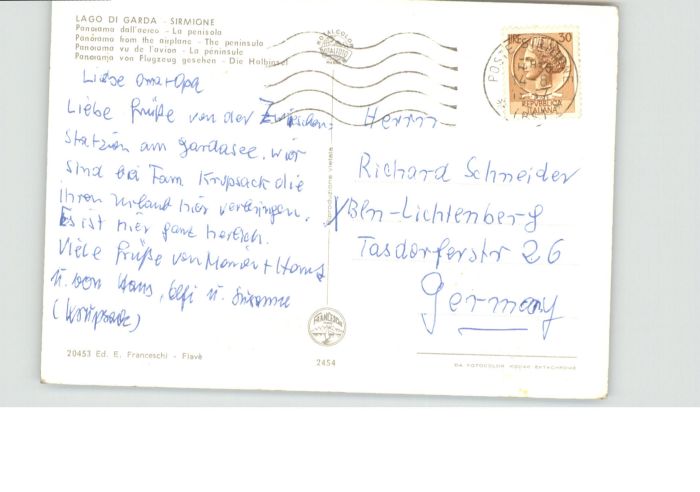 LAGO DI GARDA - SIRMIONE
Panorama dall'aereo - La penisola
Panorama from the airplane - The peninsula
Panorama vu de l'avion - La péninsule
Panorama von Flugzeug gesehen - Die Halbinsel
Liebe Oma + Opa
Liebe Grüße von der Zwischen-
station am Gardasee. Wir
sind bei Fam. Krupsack die
Ihren Urlaub hier verbringen.
Es ist hier ganz herrlich.
Viele Grüße von + Hans
u. von Hans, Elfi u. Susanne
(Krupsack)
20453 Ed. E. Franceschi - Fiavè
2454
riproduzione vietata
ROTALCOLOR
ROTALFOTO
FRANCESCHI
LIRE 30
REPUBBLICA
ITALIANA
POSTE
Herrn
Richard Schneider
Bln-Lichtenberg
Tasdorferstr 26
Germany
DA FOTOCOLOR KODAK EKTACHROME